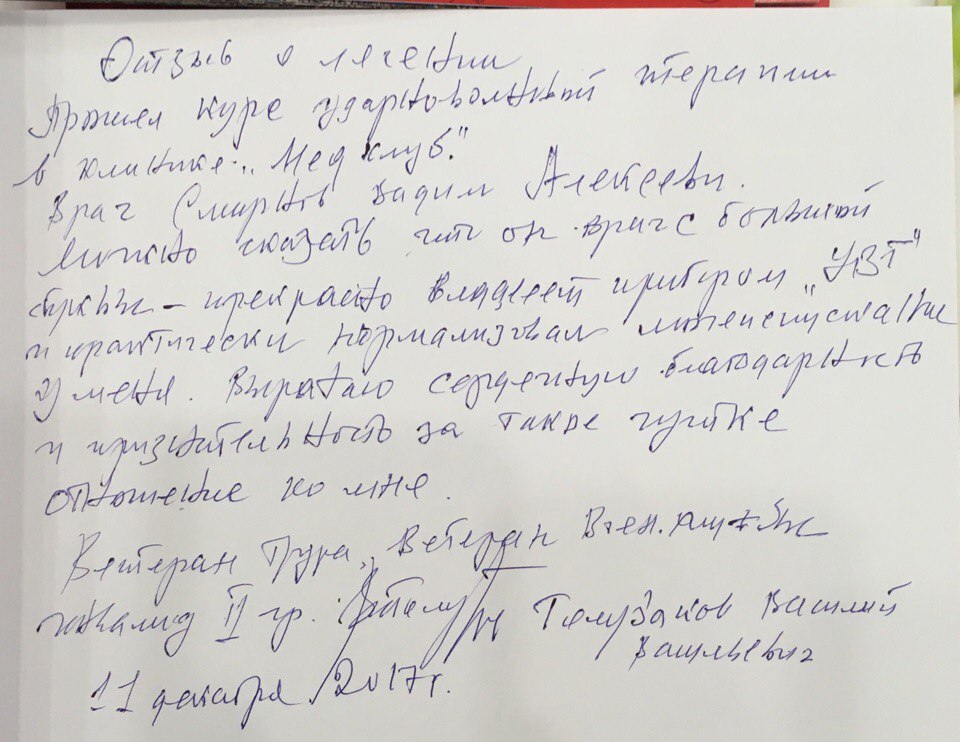 Отзыв о лечении
Прошел курс ударноволновой терапии
в клинике „Мед клуб."
Врач Смирнов Вадим Алексеевич.
Можно сказать что он врач с большой
буквы – прекрасно владеет прибором „УВТ"
и практически нормализовал мочеиспускание
у меня. Выражаю сердечную благодарность
и признательность за такое чуткое
отношение ко мне.
Ветеран Труда, Ветеран Воен. службы
инвалид II гр. Василий
Васильевич
11 декабря 2017г.